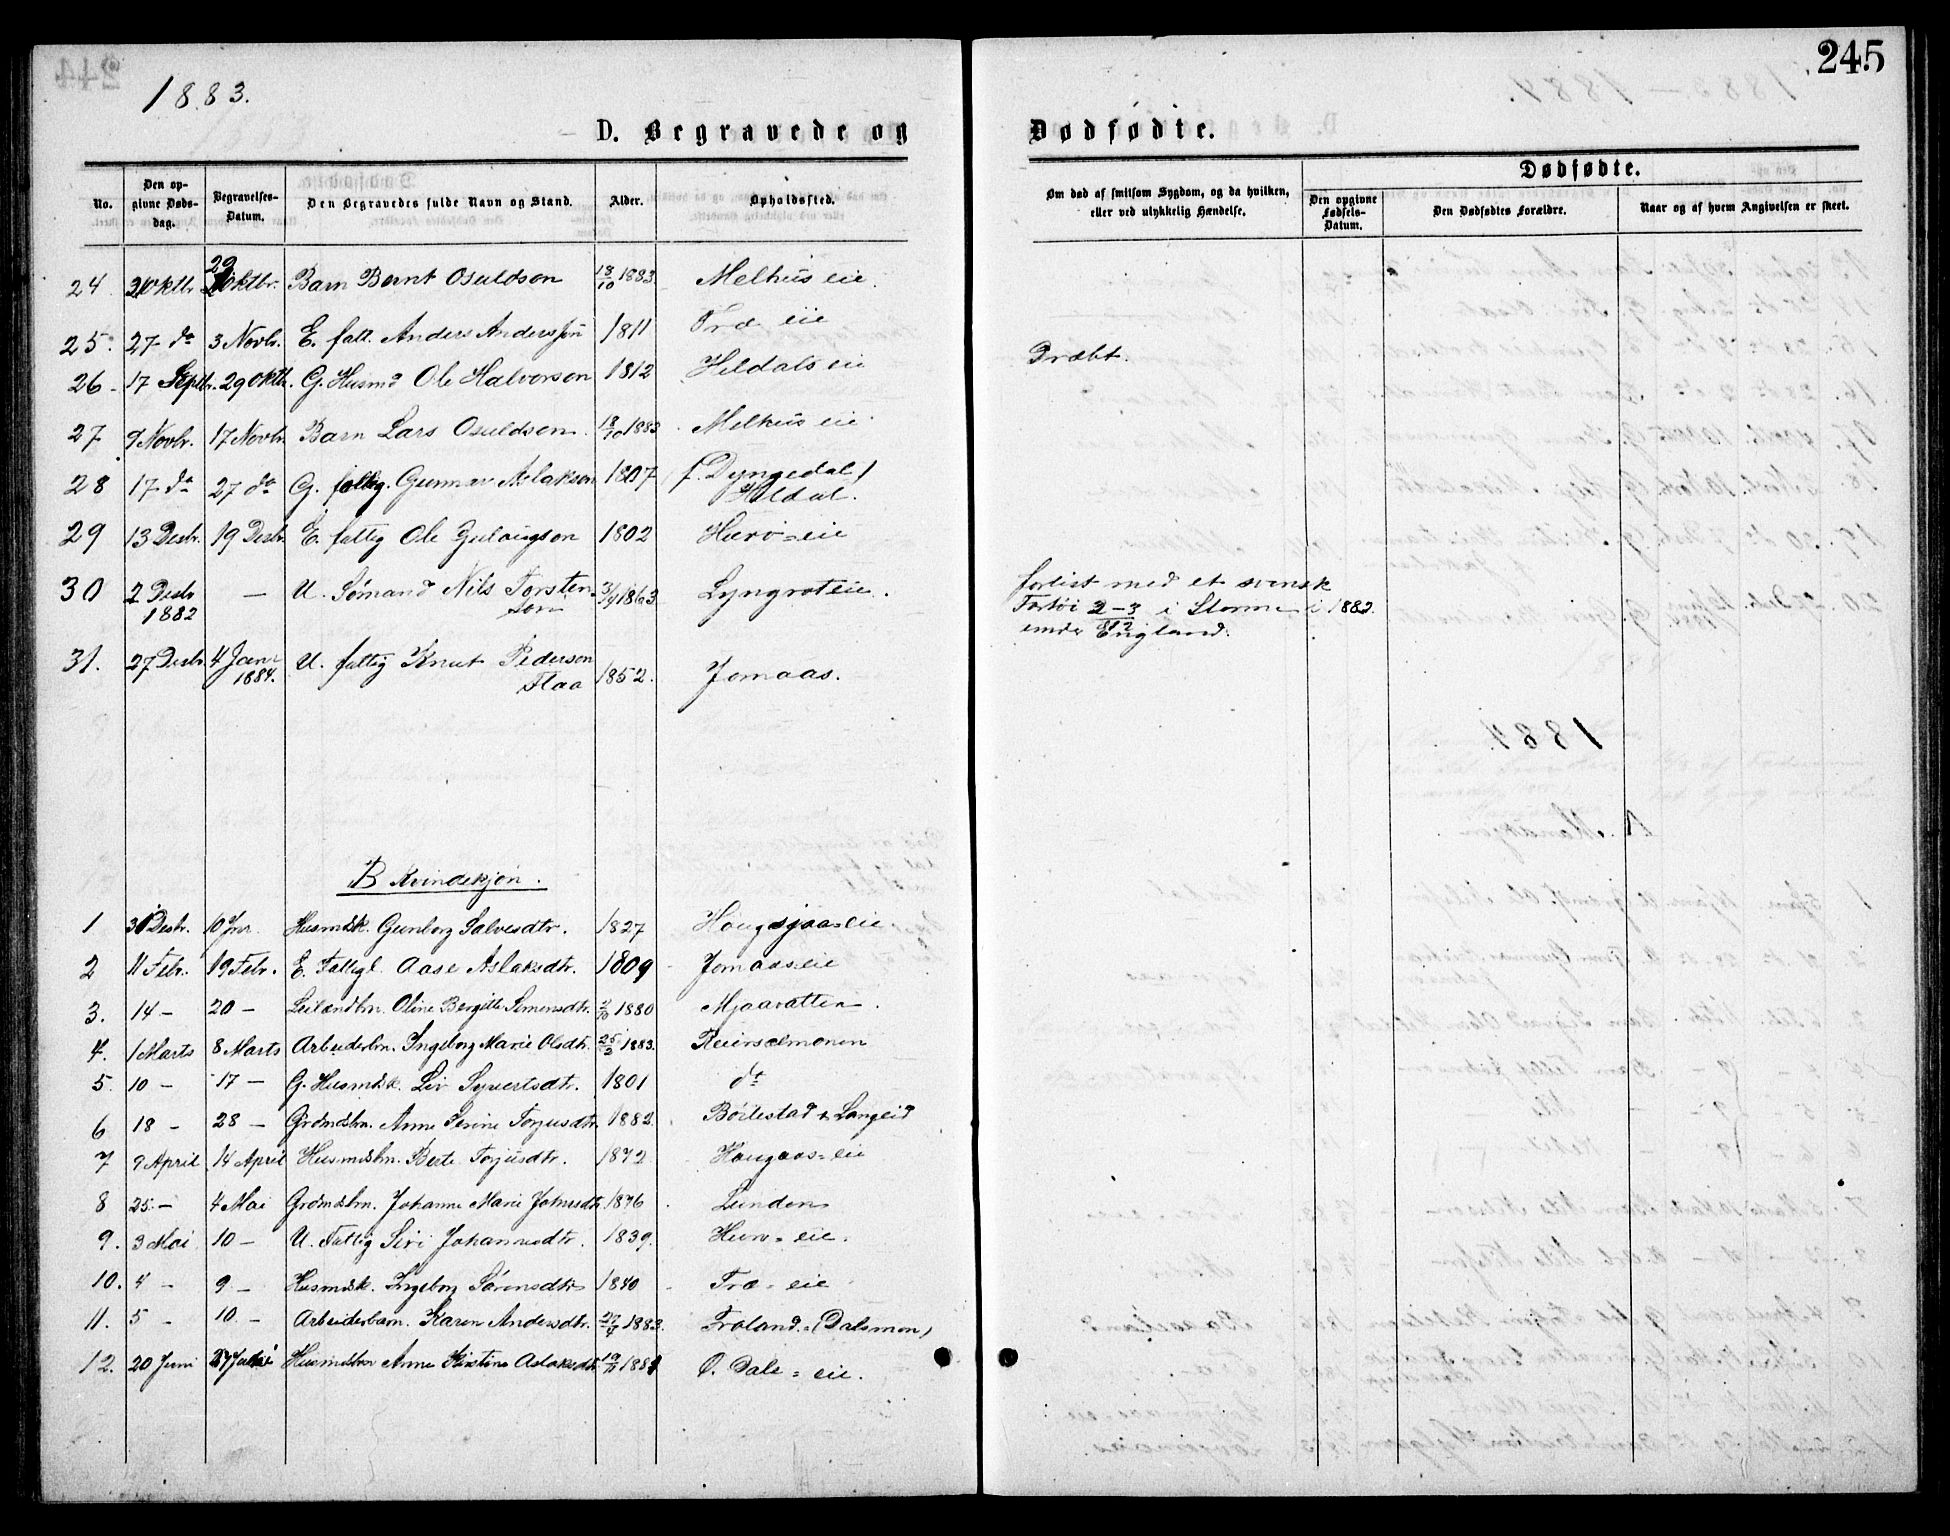 245
1883.
D. Begravede og
Dødfødte.
No.
Den op-
givne Døds-
dag.
Begravelses-
Datum.
Den Begravedes fulde Navn og Stand.
Alder.
Opholdssted.
Om død af smitsom Sygdom, og da hvilken,
eller ved ulykkelig Hændelse.
Dødfødte.
Den opgivne
Fødsels-
Datum.
Den Dødfødtes Forældre.
Naar og af hvem Angivelsen er skeet.
24 Oktbr. 29 Oktbr. Barn Bernt Osuldson 18/10 1883. Melhus eie.
25. 27 do 3 Novbr. E. fatt. Anders Anderssøn 1811 Træ eie
26 - 17 Septbr. 29 Oktbr. G. Husmd Ole Halvorson 1812 Heldals eie Dræbt.
27 9 Novbr. 17 Novbr. Barn Lars Osuldson. 18/10 1883. Melhus eie
28 17 do 27 do G. fattig. Gunnar Aslakson 1807 (f. Dyngedal)
Heldal.
29 13 Desbr. 19 Desbr. E. fattig Ole Gulaugson 1802 Herø = eie
30 2 Desbr. — U. Sømand Nils Torsten- 1863 Lyngroteie. forlist med et svensk
1882 son Fartøi 2-3/12 i Storm i 1882.
under England.
31. 27 Desbr. 4 Janr. U. fattig Knut Pederson 1852. Jomaas.
1884. Flaa
B Kvindekjøn.
1 Desbr. 10 Jnr. Husmdsk. Gunborg Salvesdtr. 1827 Hougsjaaseie
2 11 Febr. 19 Febr. E. Fattigl. Aase Aslaksdtr. 1809 Jomaaseie
3. 14 - 20 - Leilændbrn. Oline Bergitte Simensdtr. 2/10 1880 Mjaavatten.
4. 1 Marts 8 Marts Arbeiderbrn. Ingeborg Marie Olsdtr. 25/2 1883. Reierselmoen
5. 10 - 17 - G. Husmdsk. Liv Syvertsdtr. 1801 dt
6 18 - 28 - Grdmdsbrn. Anne Serine Torjusdtr. 1882. Bøilestad Langeid
7 9 April 14 April Husmdsbrn. Berte Torjusdtr. 1872. Hougaas = eie
8 25 - 4 Mai Grdmdsbrn. Johanne Marie Johnsdtr. 1876 Lunden
9. 3 Mai 10 - U. Fattig Siri Johannesdtr. 1839. Herø = eie.
10. 4 - 9 - Husmdsk. Ingeborg Sørensdtr. 1840 Træ = eie
11. 5 - 10. - Arbeiderbarn. Karen Andersdtr. 1883. Froland. (Dalsmon)
12. 20 Juni 27 Husmdsbrn Anne Kirstine Aslaksdtr. Ø. Dale = eie.